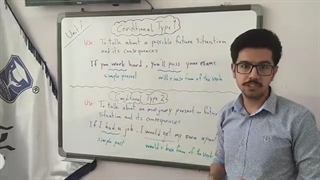 Unit
Conditional Type 1
Use: To talk about a possible future situation
and its consequences
If you work hard, you'll pass your exams
simple present will + base form of the verb
Conditional Type 2
Use: To talk about an imaginary present or future
situation and its consequences
If I had a job, I would my own
simple past would + base form of the verb